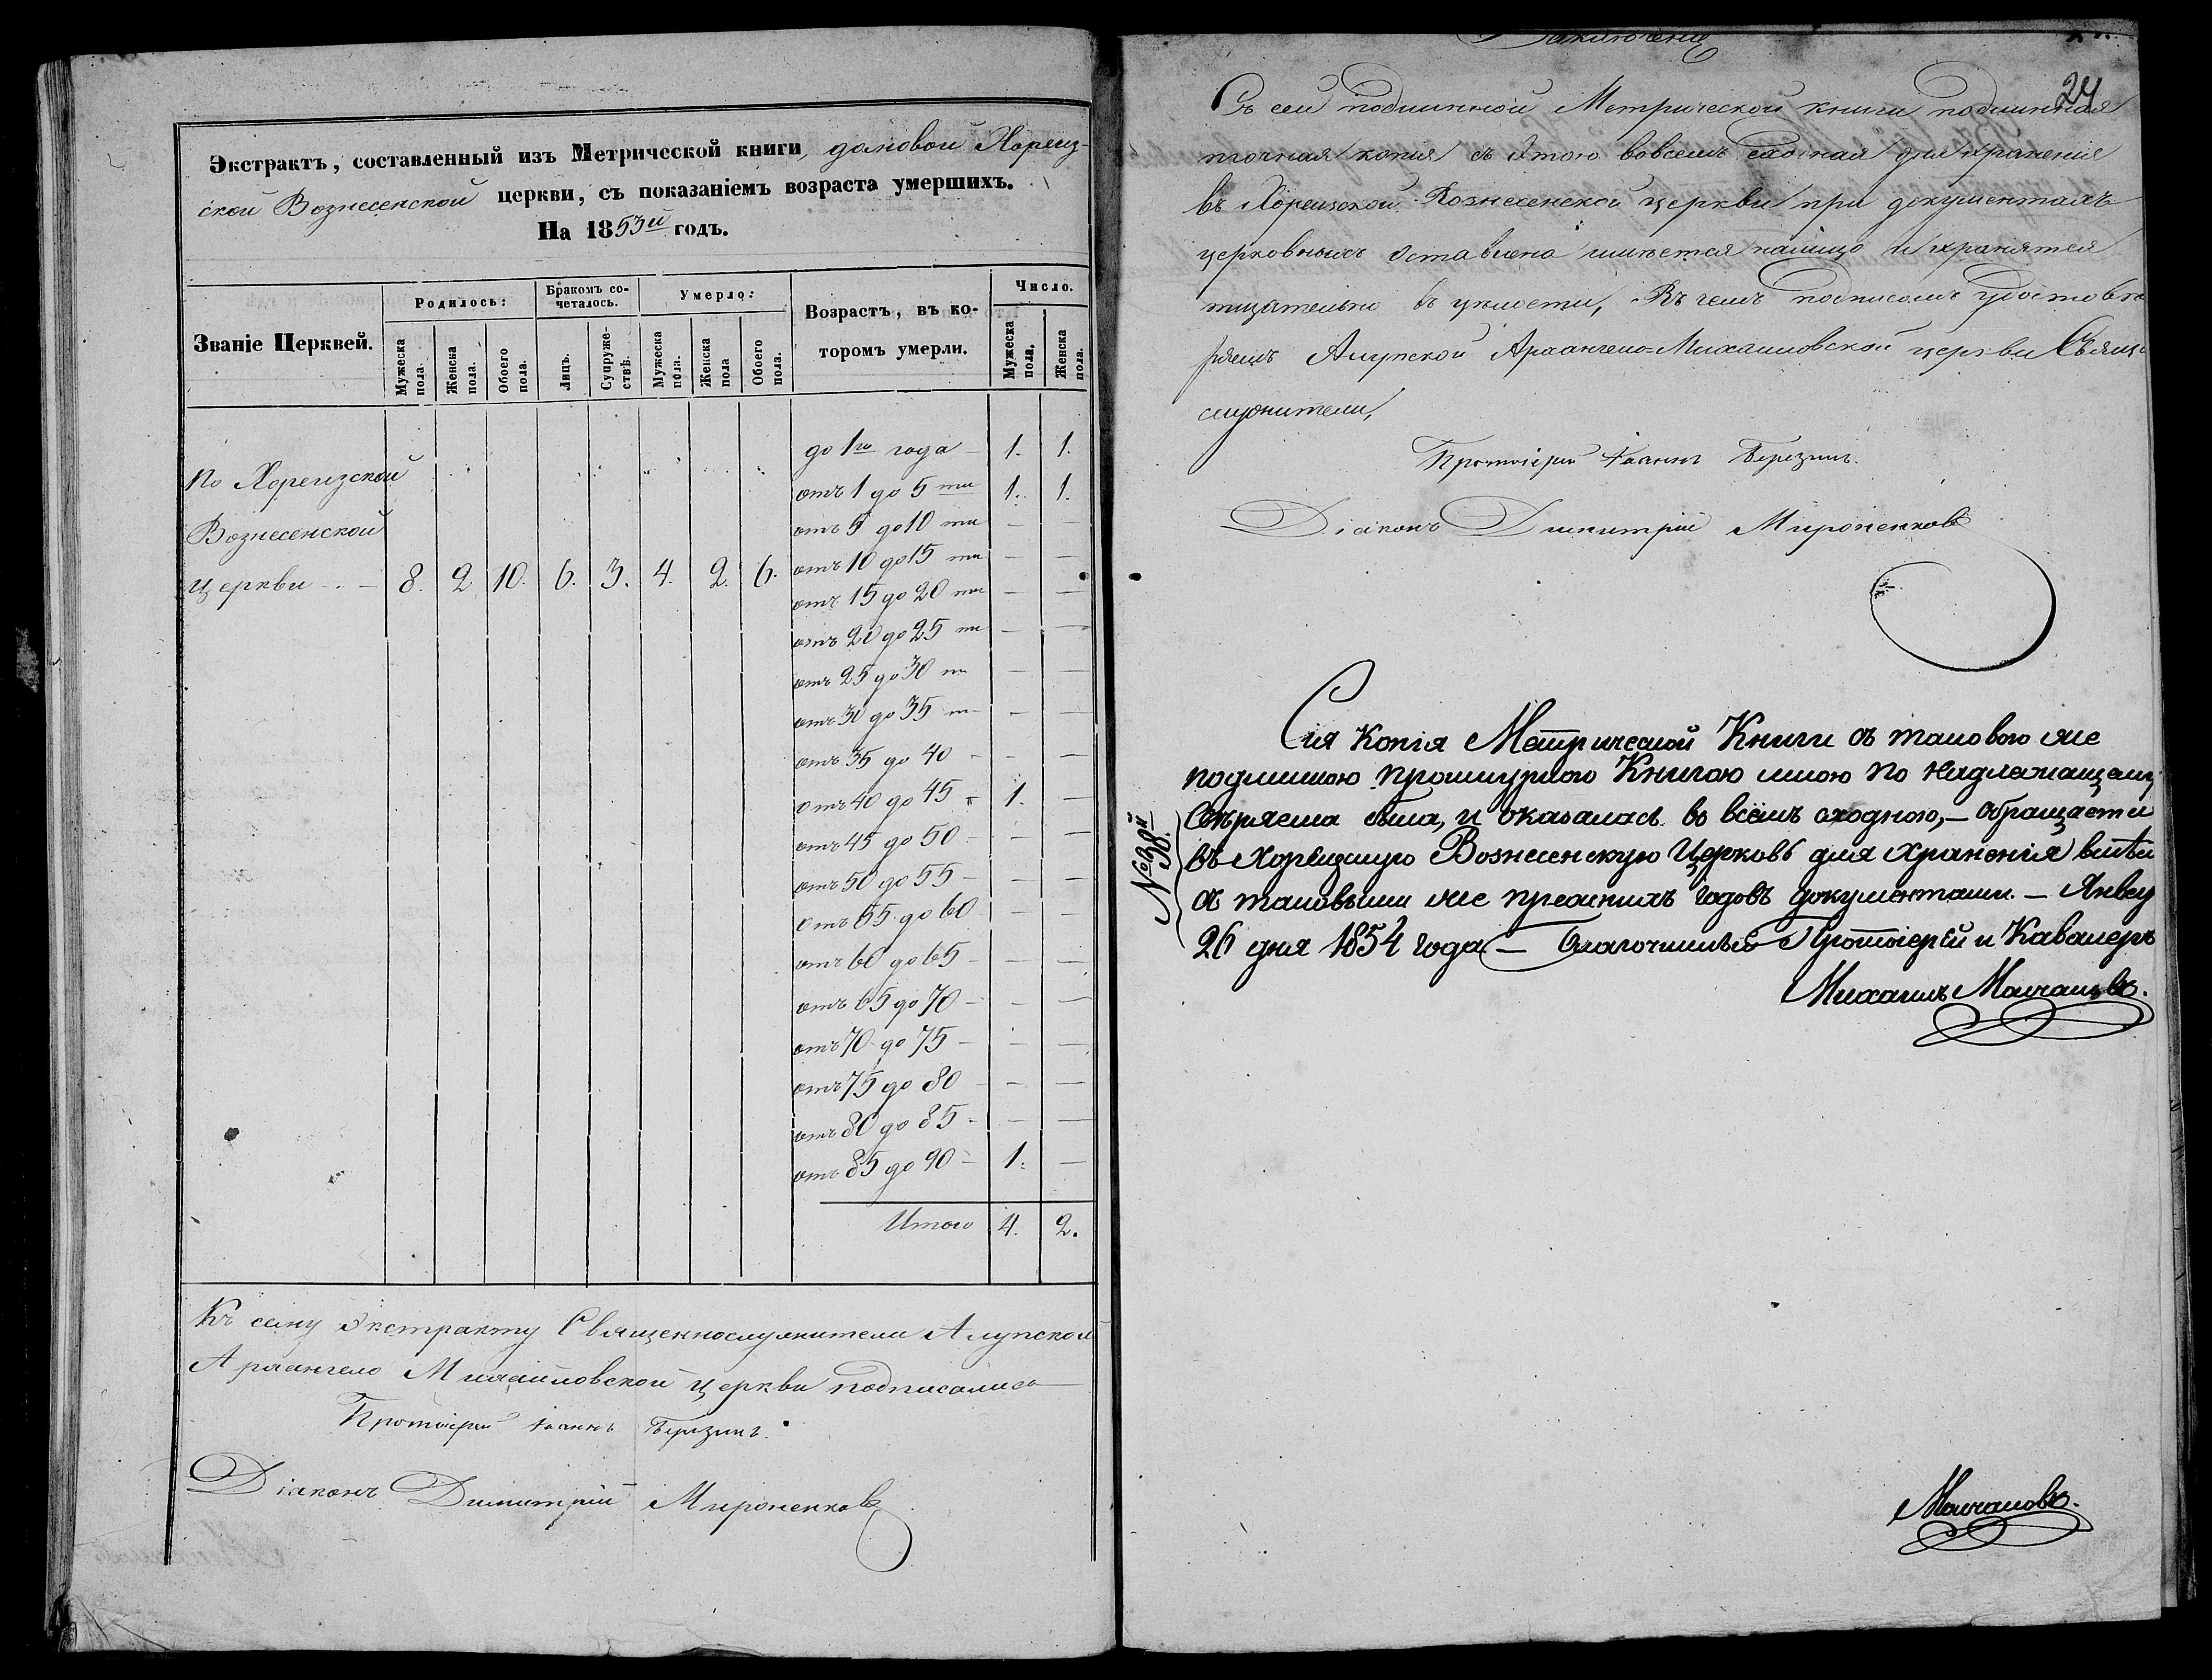 Экстрактъ, составленный изъ Метрической книги, домовой Хореиз-
ской Вознесенской церкви, съ показаніемъ возраста умершихъ.
На 1853й годъ.
Званіе Церквей.
Родилось:
Мужеска пола.
Женска пола.
Обоего пола.
Бракомъ сочеталось.
Лицъ.
Супружествъ.
Умерло:
Мужеска пола.
Женска пола
Обоего пола.
Возрастъ, въ ко-
торомъ умерли.
Число.
Мужеска пола.
Женска пола.
По Хореизской
Вознесенской
церкви - 8. 2 10. 6. 3. 4. 2. 6.
до 1го года - 1. 1.
отъ 1 до 5 ти 1. 1.
отъ 5 до 10 ти — —
отъ 10 до 15 ти — —
отъ 15 до 20 ти — —
отъ 20 до 25 ти — —
отъ 25 до 30 ти — —
отъ 30 до 35 ти — —
отъ 35 до 40 - — —
отъ 40 до 45 - 1. —
отъ 45 до 50 - — —
отъ 50 до 55 - — —
отъ 55 до 60 — —
отъ 60 до 65 - — —
отъ 65 до 70 - — —
отъ 70 до 75 - — —
отъ 75 до 80 - — —
отъ 80 до 85 - — —
отъ 85 до 90 - 1. —
Итого 4. 2.
Къ сему экстракту Священнослужители Алупской
Архангело Михайловской церкви подписались
Протоіерей Іоаннъ Березинъ.
Діаконъ Димитрій Мироненковъ
Заключеніе
24
Съ сей подлинной Метрической книги подлинная
точная копія съ этою вовсемъ сходная для храненія
въ Хореизской Вознесенской церкви при документахъ
церковныхъ оставлена имѣется налицо и хранится
тщательно въ цѣлости, Въ чемъ подписомъ удостовѣ
ряемъ Алупской Архангело-Михайловской церкви Свящ.
служители,
Протоіерей Іоаннъ Березинъ.
Діаконъ Димитрій Мироненковъ
№ 38й
Сія Копія Метрической Книги съ таковою же
подлинною прошнурною Книгою мною по надлежащему
свѣряема была, и оказалась во всёмъ сходною,— обращается
въ Хореизскую Вознесенскую Церковь для храненія
съ таковыми же прежнихъ годовъ документами. — Январ
26 дня 1854 года — Благочинный Протоіерей и Кавалеръ
Михаилъ